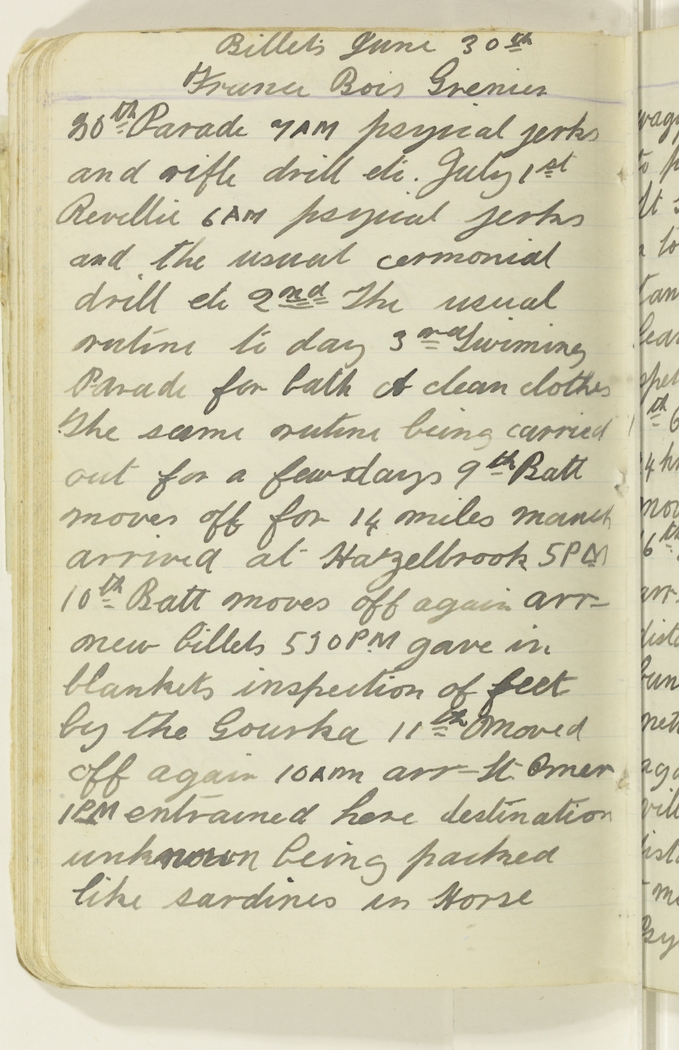 Billets June 30th
France Bois Grenier
30th Parade 7AM psyical jerks
and rifle drill etc. July 1st
Revellie 6AM psyical jerks
and the usual cermonial
drill etc 2nd The usual
rutine to day 3rd Swiming
Parade for bath & clean clothes
The same rutine being carried
out for a few days 9th Batt
moves off for 14 miles march
arrived at Hazelbrook 5PM
10th Batt moves off again arr-
new billets 530PM gave in
blankets inspection of feet
by the Gourka 11th moved
off again 10AM arr- St. Omer
1PM entrained here destination
unknown being packed
like sardines in Horse